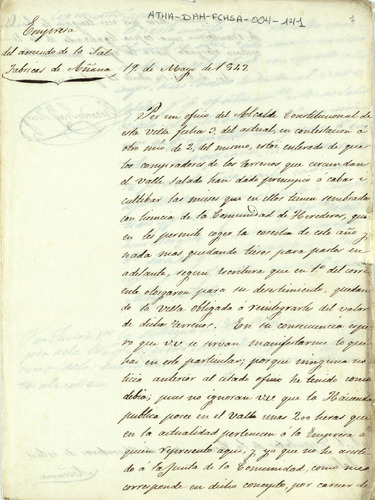 ATHA-DAH-FCHSA-004-141
Empresa
del arriendo de la Sal
Fabricas de Añana
19 de Mayo de 1842
Por un oficio del Alcalde Constitucional de
esta villa fecha 3 del actual, en contestacion á
otro mio de 2 del mismo, estoy enterado de que
los compradores de los terrenos que circundan
el valle salado han dado principio á cabar i
cultibar las mieses que en ellos tienen sembradas
con licencia de la Comunidad de Herederos, que
en les permite coger la cosecha de este año y
nada mas quedando libres para pastos en
adelante, segun escritura que en 1º del corrien
te otorgaron para su desestimiento, quedan
do la villa obligada á reintegrarles del valor
de dichos terrenos. En su consecuencia espe
ro que VV se sirvan manifestarme lo que
hai en este particular; porque ninguna no
ticia anterior al citado oficio he tenido como
debia; pues no ignoran VV que la Hacienda
publica posee en el Valle unas 200 heras que
en la actualidad pertenecen á la Empresa á
quien represento aqui, y ya que no he asisti
do á la Junta de la Comunidad, como me
corresponde en dicho concepto, por carecer de